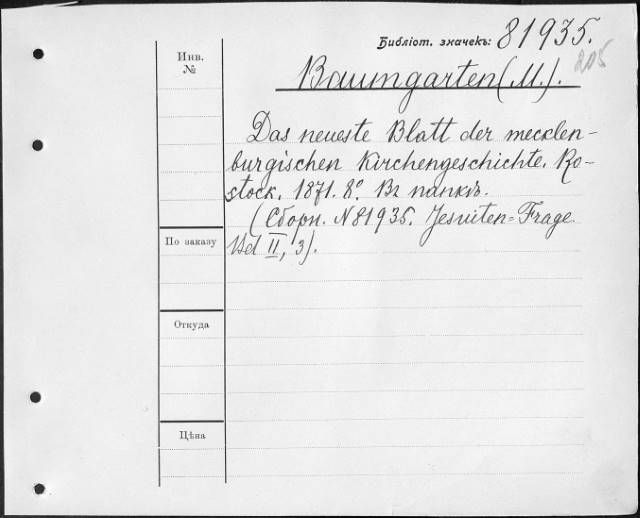 Библіот. значекъ: 81935.
205
Инв.
№
Baumgarten (M.).
Das neueste Blatt der mecklen-
burgischen Kirchengeschichte. Ro-
stock. 1871. 8º. Въ папкѣ.
(Сборн. N81935. Jesuiten=Frage
Bd II, 3).
По заказу
Откуда
Цѣна